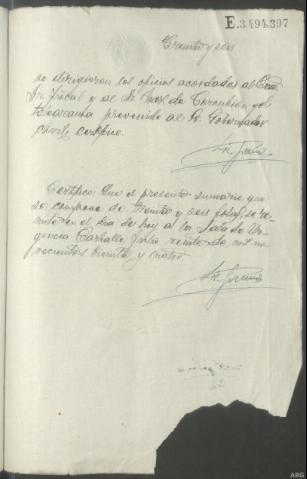 E.3.494.397
Treinta y seis
se dirigieron los oficios acordados al Exmo
Sr Fiscal y al Sr Juez de Corcubión y el
telegrama prevenido al Sr. Gobernador
civil, certifico.
Certifico: Que el presente sumario, que
se compone de treinta y seis folios, se re-
mite en el dia de hoy a la Sala de Ur-
gencia Carballo Julio veinte de mil no-
vecientos treinta y cuatro
ARG